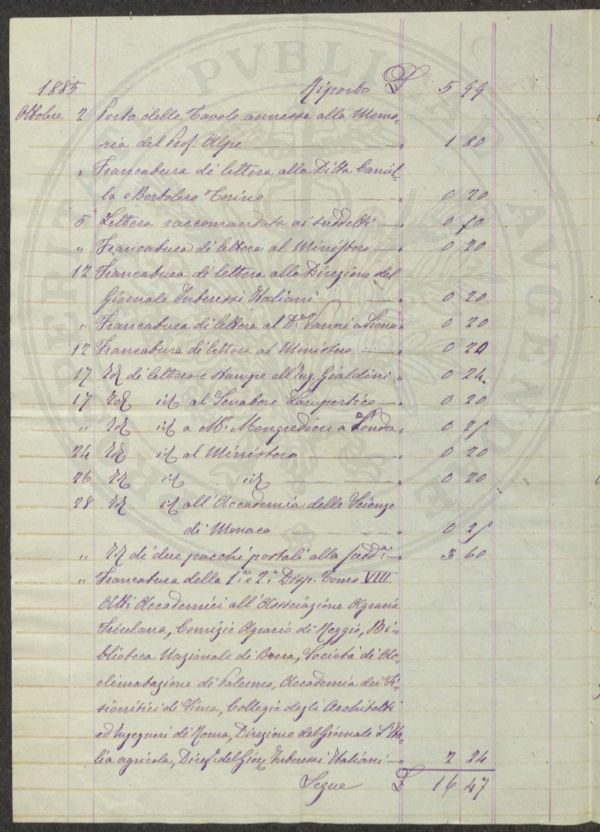 1885 Riporto £ 5 99
Ottobre 2 Porto delle Tavole annesse alla Memo-
ria del Prof. Alpe " 1 80
" Francatura di lettera alla Ditta Camil-
la e Bertolero Torino " 0 20
5 Lettera raccomandata ai suddetti " 0 50
" Francatura di lettera al Ministero " 0 20
12 Francatura di lettera alla Direzione del
Giornale Interessi Italiani " 0 20
" Francatura di lettera al Dr Vanni a Siena " 0 20
12 Francatura di lettera al Ministero " 0 20
17 Id di lettera e stampe all'Ing. Gialdini " 0 24
17 Id id al Senatore Lampertico " 0 20
" Id id a Mr a Londra " 0 25
24 Id id al Ministero " 0 20
26 Id id id " 0 20
28 Id id all'Accademia delle Scienze
di Monaco " 0 25
" Id di due pacchi postali alla sudda " 3 60
" Francatura della 1a e 2a Disp. Tomo VIII.
Atti Accademici all'Associazione Agraria
Friulana, Comizio Agrario di Reggio, Bi-
blioteca Nazionale di Brera, Società di Ac-
climatazione di Palermo, Accademia dei Fi-
siocritici di Siena, Collegio degli Architetti
ed Ingegneri di Roma, Direzione del Giornale L'Ita-
lia agricola, Direz. del Gior. Interessi Italiani " 2 24
Segue £ 16 47
PVBLI